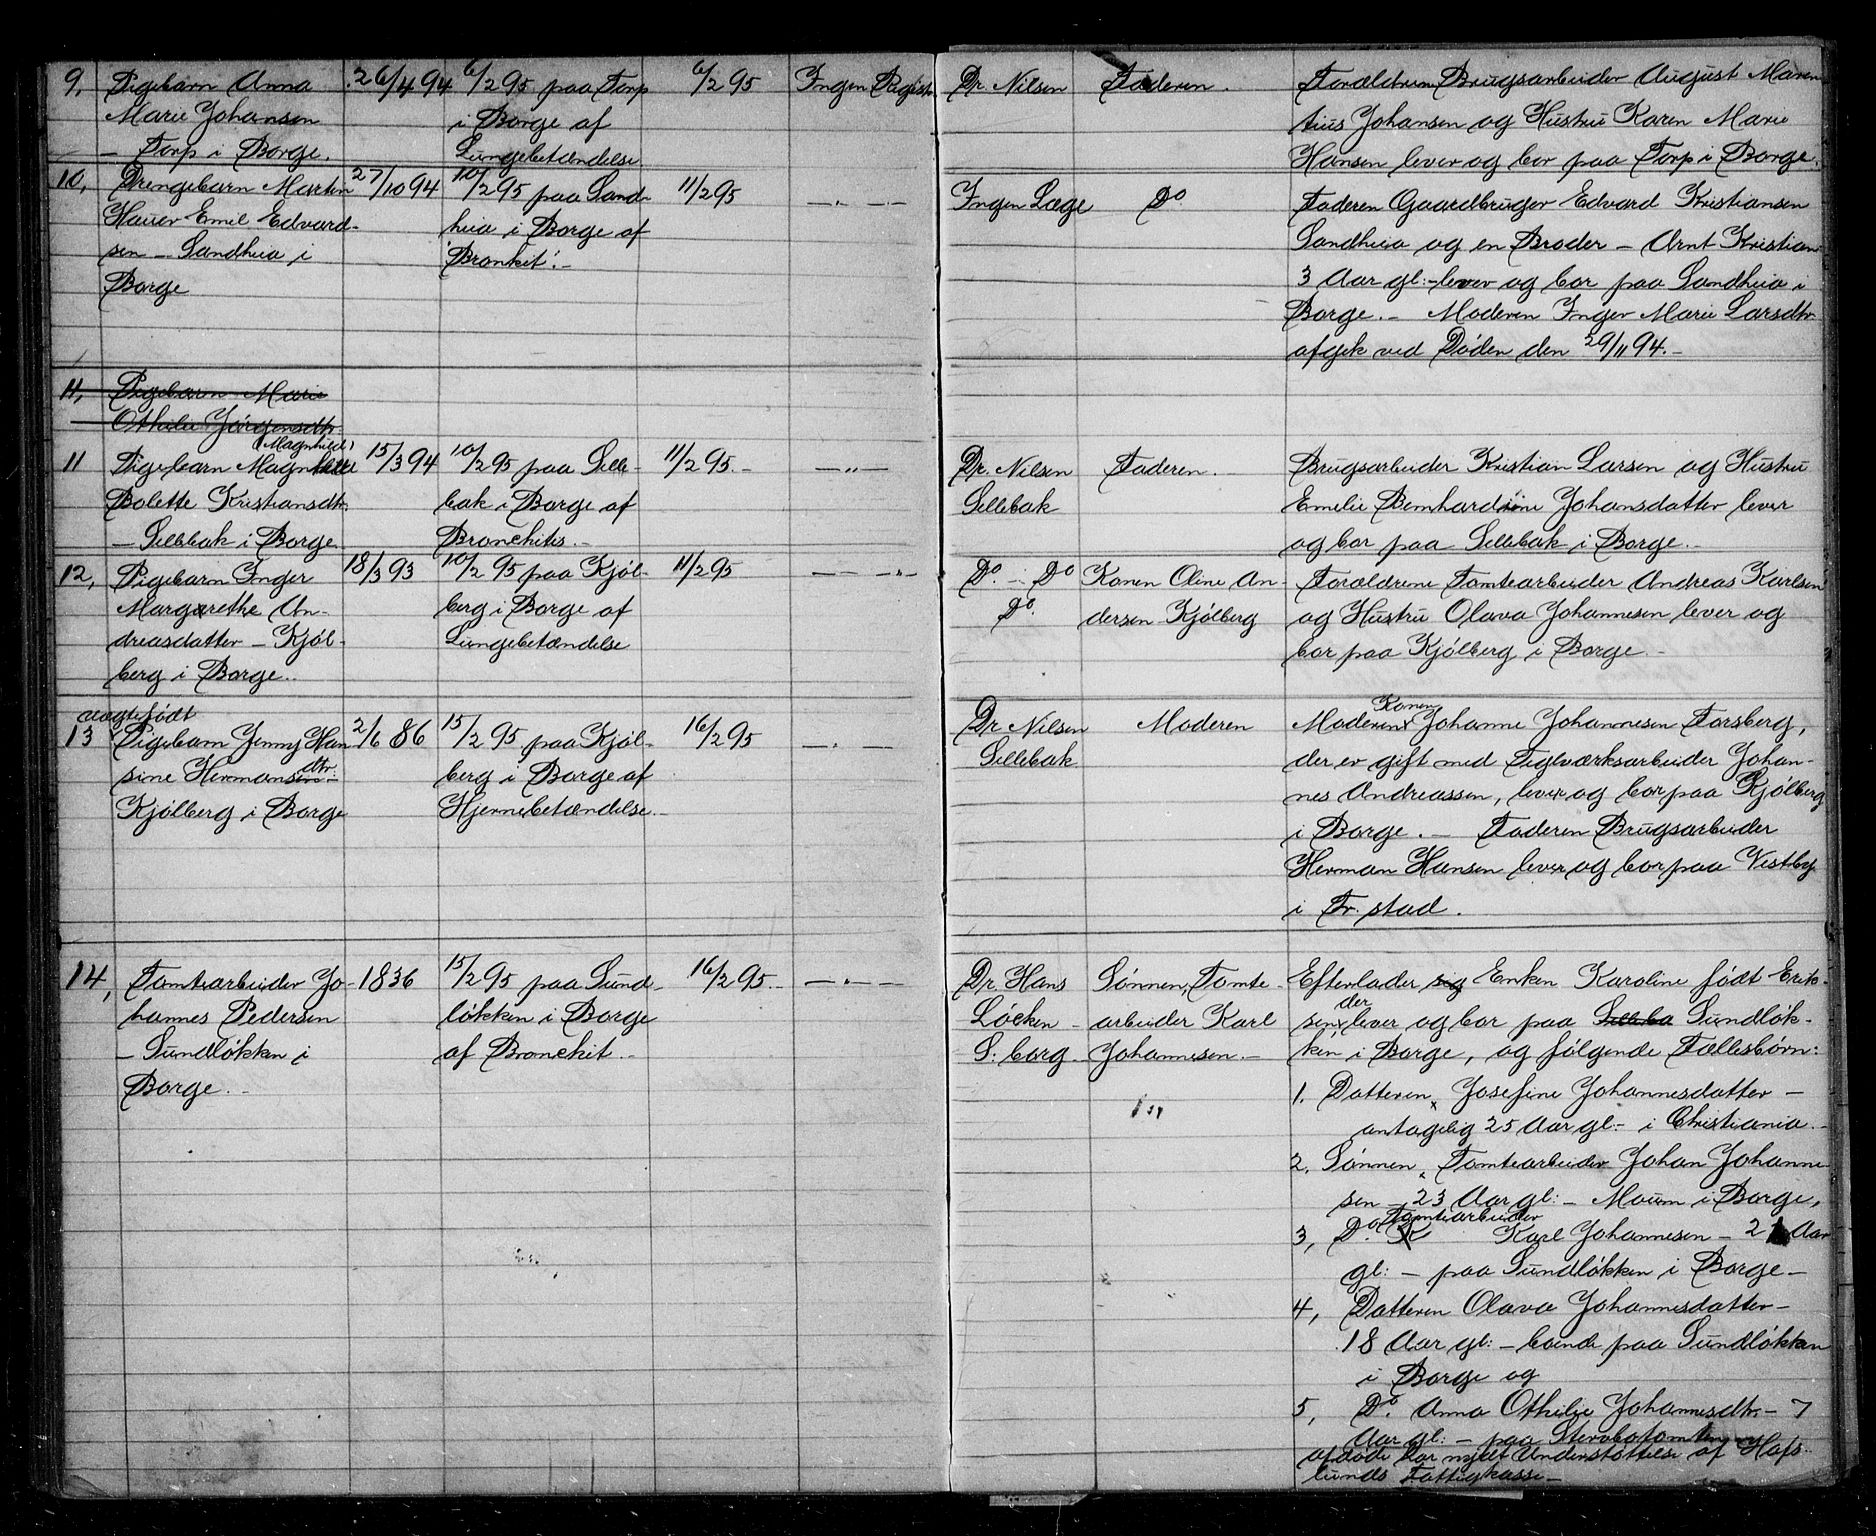 9, Pigebarn Anna 26/4 94 6/2 95 paa Torp 6/2 95 Ingen Registr. Dr. Nilsen Faderen. Forældrene Brugsarbeider August Maren
Marie Johansen i Borge af tius Johansen og Hustru Karen Marie
— Torp i Borge. Lungebetændelse Hansen lever og bor paa Torp i Borge.
10, Drengebarn Martin 27/10 94 10/2 95 paa Sand- 11/2 95 —〃— Ingen Læge Do. Faderen Gaardbruger Edvard Kristiansen
Hauer Emil Edvard- heia i Borge af Sandheia og en Broder — Arnt Kristian
sen — Sandheia i Bronkit. — 3 Aar gl: — lever og bor paa Sandheia i
Borge Borge. — Moderen Inger Marie Larsdtr.
afgik ved Døden den 29/11 94. —
11, Pigebarn Marie
Othilie Jørgensdtr.
(Magnhild)
11 Pigebarn 15/3 94 10/2 95 paa Selle- 11/2 95. — —〃— Dr. Nilsen Faderen. Brugsarbeider Kristian Larsen og Hustru
Bolette Kristiansdtr. bak i Borge af Sellebak Emelie Bernhardine Johansdatter lever
— Sellebak i Borge. Bronchites. — og bor paa Sellebak i Borge. —
12, Pigebarn Inger 18/3 93 10/2 95 paa Kjøl- 11/2 95 —〃— Do. — Do Konen Oline An- Forældrene Tomtearbeider Andreas Karlsen
Margarethe An- berg i Borge af Do. dersen Kjølberg og Hustru Olava Johannesen lever og
dreasdatter — Kjøl- Lungebetændelse bor paa Kjølberg i Borge —
berg i Borge.
uægtefødt Konen
13 Pigebarn Jenny Han 2/6 86 15/2 95 paa Kjøl- 16/2 95 —〃— Dr. Nilsen Moderen Moderen Johanne Johannesen Forsberg,
sine Hermansen dtr. — berg i Borge af Sellebak der er gift med Teglværksarbeider Johan-
Kjølberg i Borge Hjernebetændelse. — nes Andreassen, lever og bor paa Kjølberg
i Borge. — Faderen Brugsarbeider
Herman Hansen lever og bor paa Vestby
i Fr. stad.
14, Tomtearbeider Jo- 1836 15/2 95 paa Sund- 16/2 95. — —〃— Dr. Hans Sønnen, Tomte- Efterlader sig Enken Karoline født Erik-
hannes Pedersen løkken i Borge Løcken arbeider Karl sen der lever og bor paa Selleba Sundløk-
— Sundløkken i af Bronchit. — S: borg Johannesen. — ken i Borge, og følgende Fællesbørn:
Borge. —
1. Datteren Josefine Johannesdatter —
antagelig 25 Aar gl: — i Christiania. —
2. Sønnen Tomtearbeider Johan Johanne-
sen — 23 Aar gl: — Moum i Borge,
Tomtearbeider
3, Do. K Karl Johannesen — 21 Aar
gl: — paa Sundløkken i Borge —
4, Datteren Olava Johannesdatter —
18 Aar gl: — boende paa Sundløkken
i Borge og
5, Do. Anna Othilie Johannesdtr. — 7
Aar gl: — paa Stervbotomten
afdøde har nydt Understøttelse af Hafs-
lunds Fattigkasse —